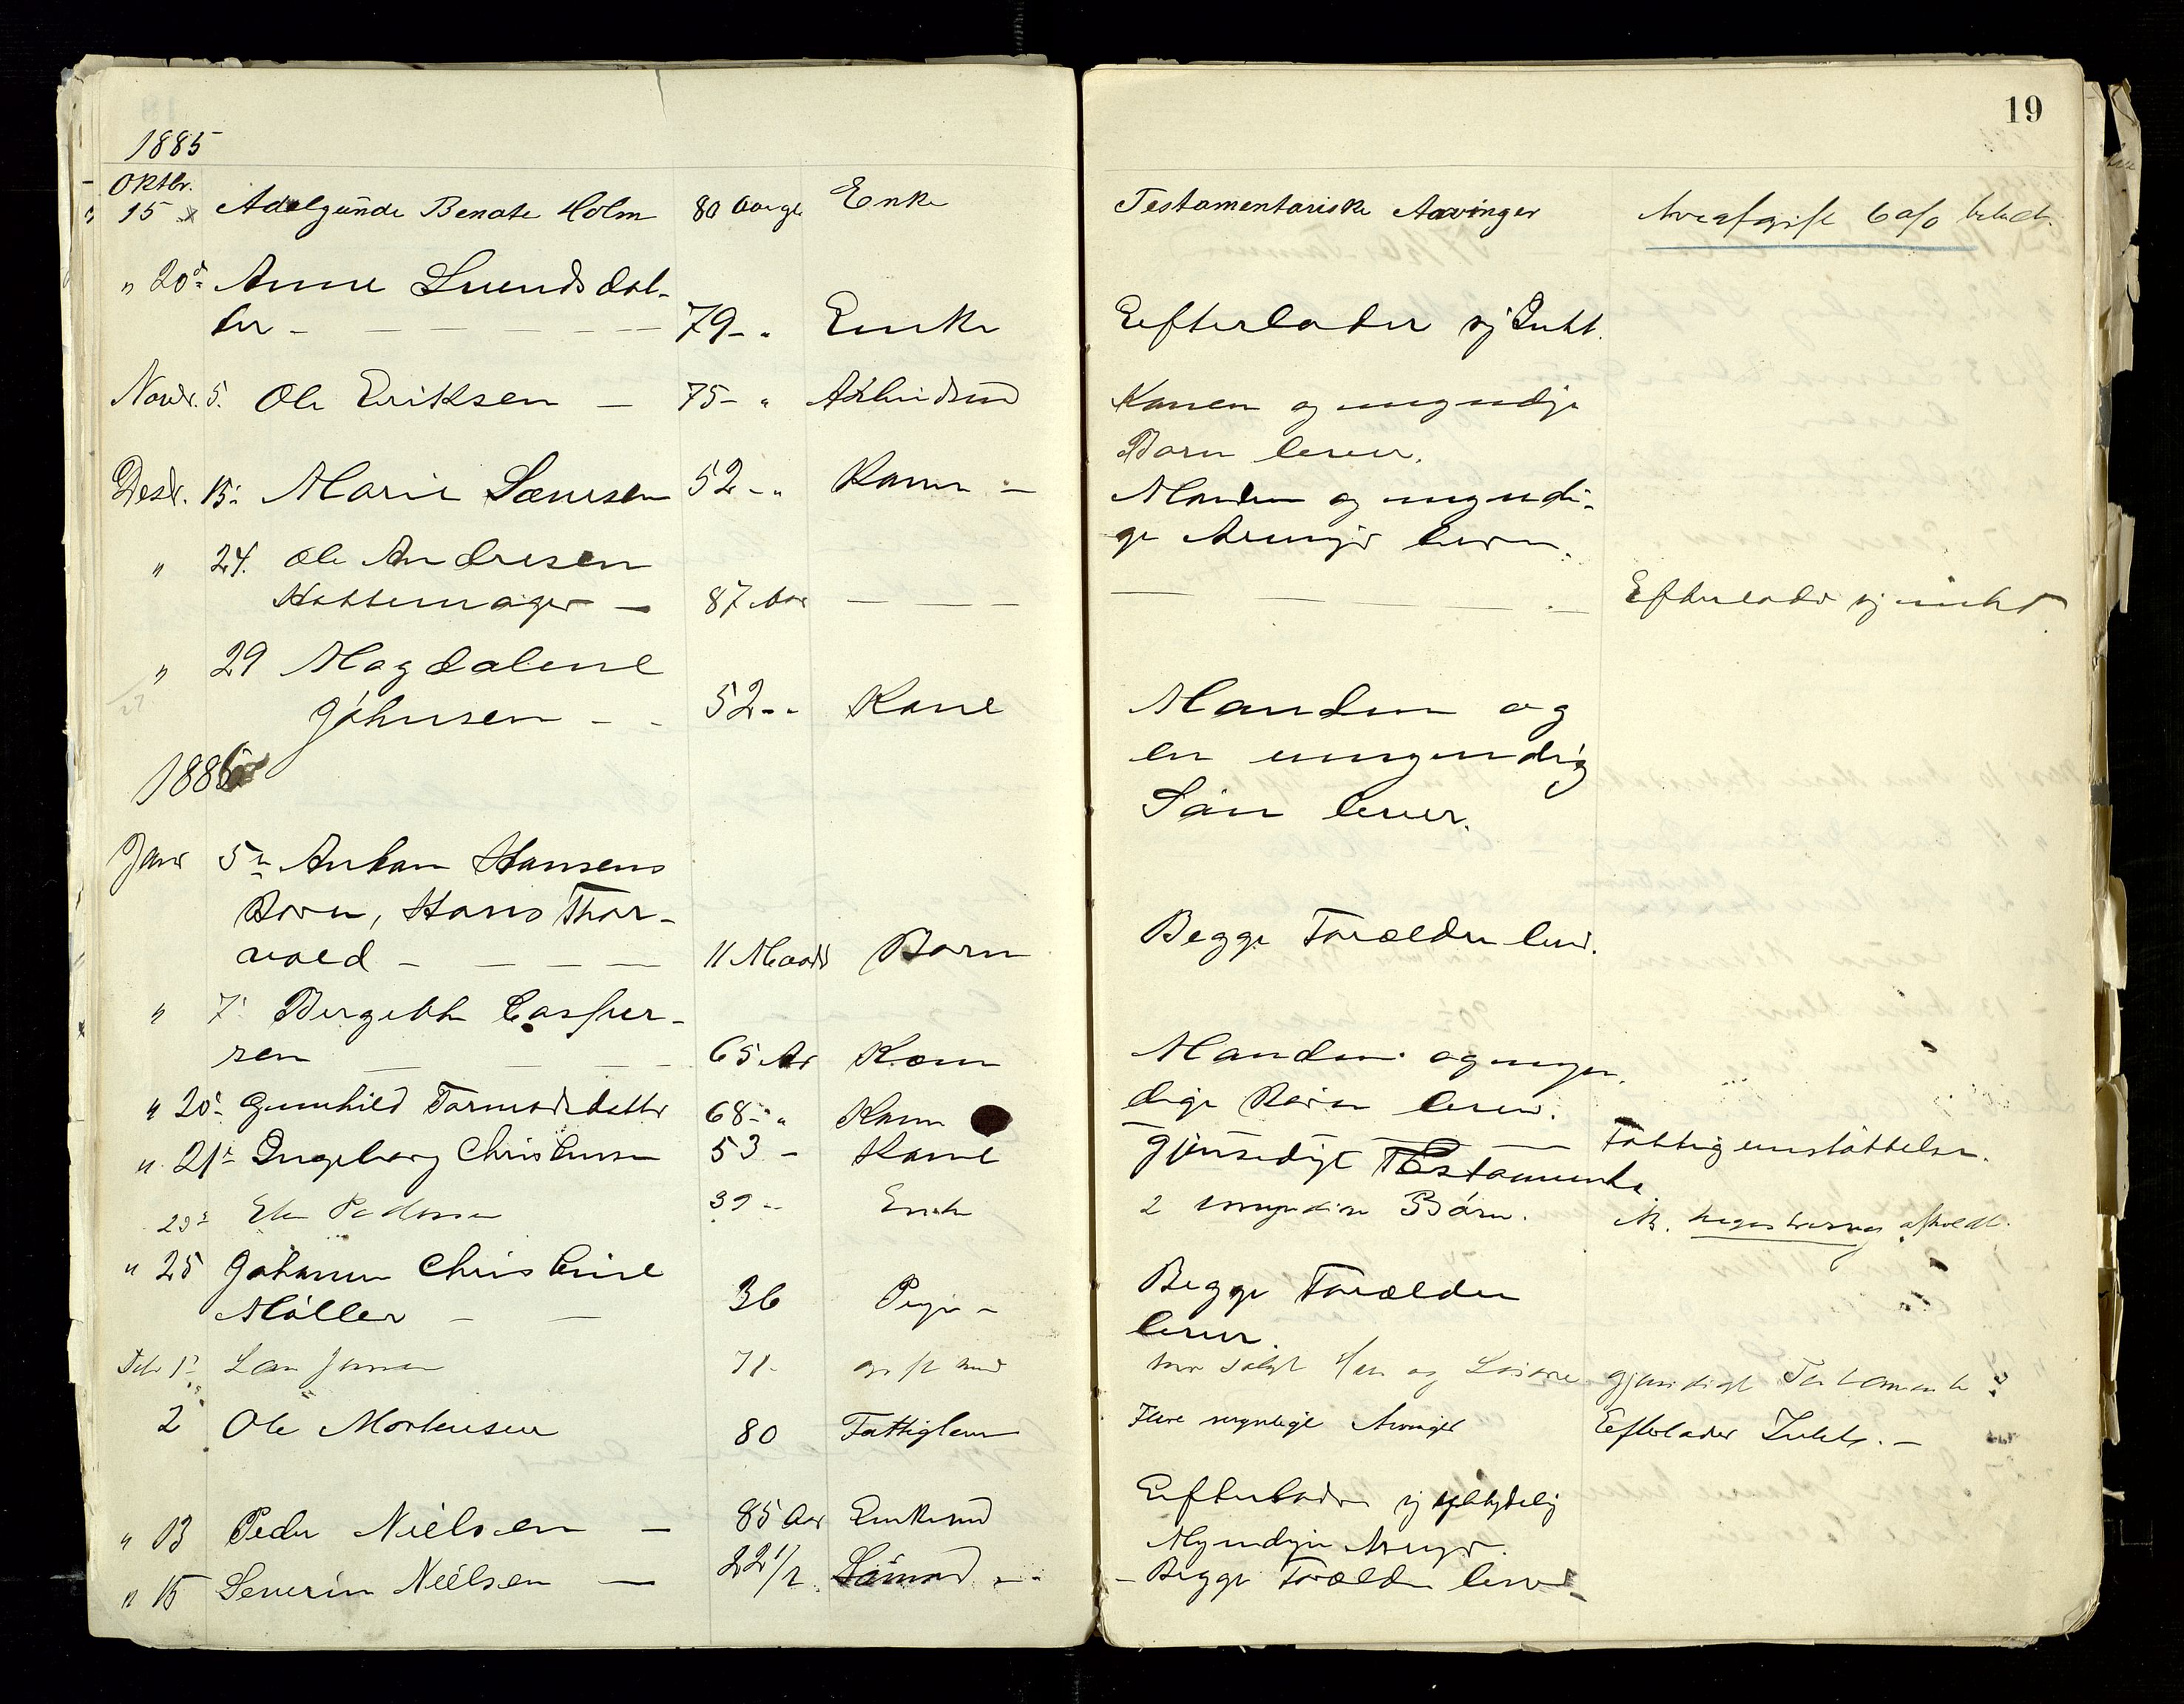 19
1885
Oktbr.
" 15 Adelgunde Benate Holm 80 Aar gl Enke Testamentariske Arvinger Arveafgift 6 o/o betalt.
" 20d Anne Svendsdat-
ter - 79 - " Enke Efterlader ej Intet.
Novbr. 5. Ole Eriksen - 75 - " Arbeidsmd Konen og myndige
Børn lever.
Desbr. 15. Marie Laursen 52 - " Kone - Manden og myndi-
ge Arvinger lever.
" 24. Ole Andresen
Hattemager - 87 Aar - - - Efterlader ej intet
" 29 Magdalene
Johnsen - - 52 - - Kone Manden og
en umyndig
Søn lever.
1886
Janr 5te Anton Hansens
Barn, Hans Thor-
vald - - - - 11 Maadr Barn Begge Forældre lever.
" 7. Bergitte Casper-
sen - - - 65 Ar Kone Manden og myn-
dige Børn lever.
" 20d Gunhild Tormodsdatter 68 - " Kone - - - Fattigunstøttelse.
" 21d Ingeborg Christensen 53 - Kone Gjensidigt Testamente
23d Pedersen 39 - - Enke 2 umyndige Børn. NB. afholdt.
" 25 Johanne Christine
Møller - - 36 Pige - Begge Forældre
lever.
Febr 1d Lars Jensen 71 - gift md og gjensidigt Testamente
2 Ole Mortensen 80 Fattiglem Flere myndige Arvinger Efterlader Intet. -
" 13 Peder Nielsen - 85 Aar Enkemd Efterlader ej
Myndige Arvinger.
" 15 Severin Nielsen - 22 1/2 Sømand - - Begge Forældre lever